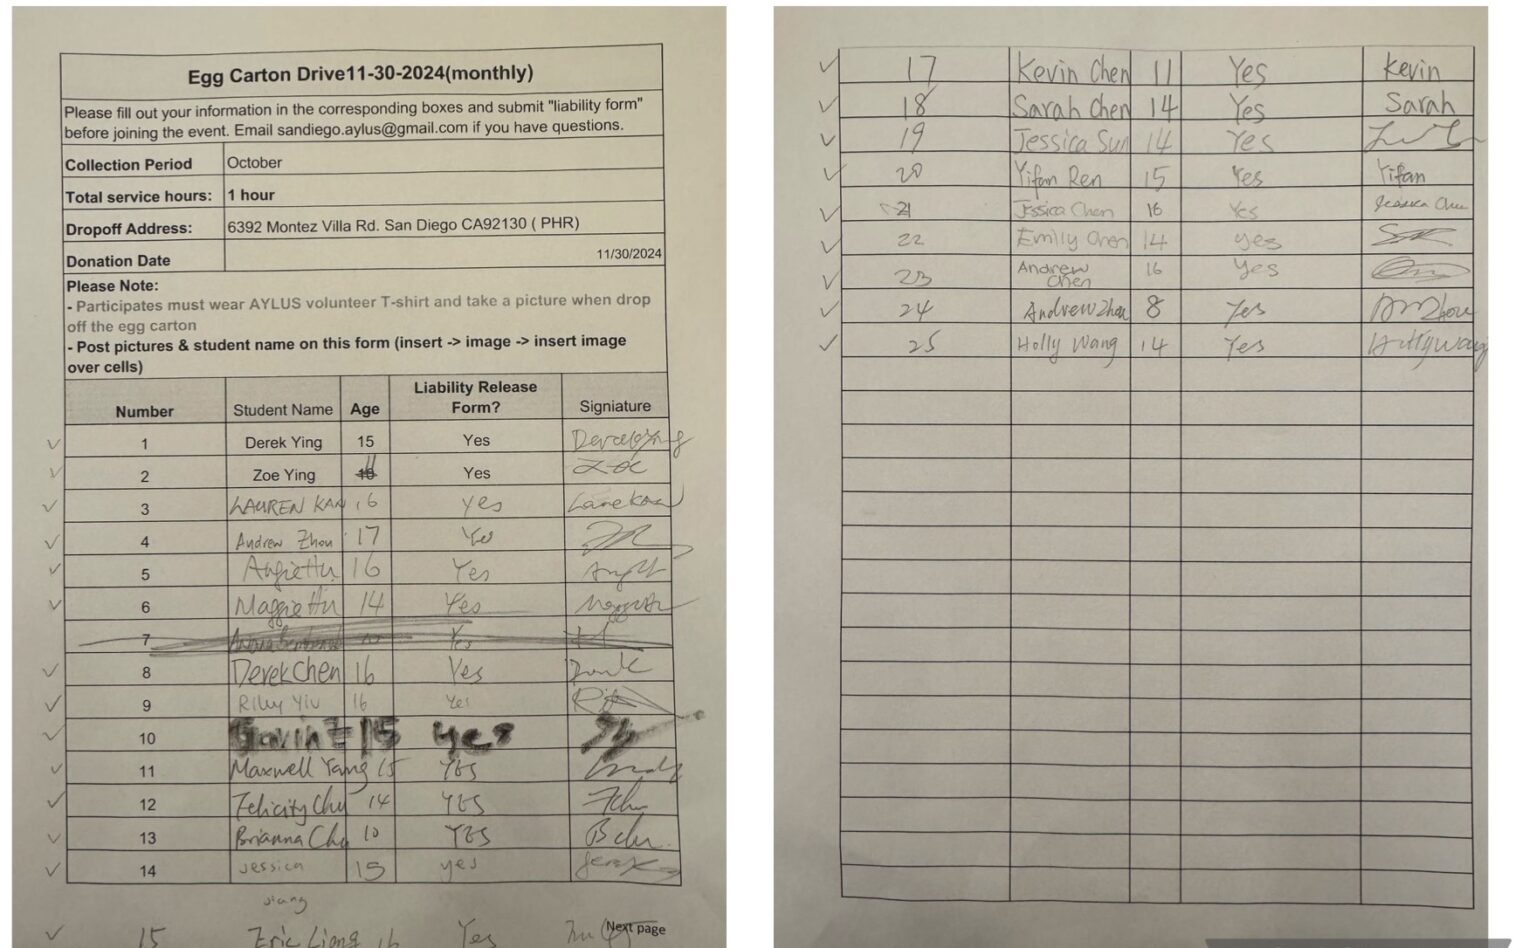 Egg Carton Drive11-30-2024(monthly)
Please fill out your information in the corresponding boxes and submit "liability form"
before joining the event. Email sandiego.aylus@gmail.com if you have questions.
Collection Period October
Total service hours: 1 hour
Dropoff Address: 6392 Montez Villa Rd. San Diego CA92130 ( PHR)
Donation Date 11/30/2024
Please Note:
- Participates must wear AYLUS volunteer T-shirt and take a picture when drop
off the egg carton
- Post pictures & student name on this form (insert -> image -> insert image
over cells)
Liability Release
Number Student Name Age Form? Signiature
1 Derek Ying 15 Yes
2 Zoe Ying 11 Yes Zoe
3 LAUREN KAN 16 Yes
4 Andrew Zhou 17 Yes
5 Angie Hu 16 Yes
6 Maggie Hu 14 Yes
7 Yes
8 Derek Chen 16 Yes
9 Riley Yiu 16 Yes
10 Gavin 15 yes
11 Maxwell Yang 15 YES
12 Felicity Chu 14 YES
13 Brianna Chu 10 YES
14 jessica 15 yes
jiang
15 Eric Liang 16 Yes
Next page
17 Kevin Chen 11 Yes Kevin
18 Sarah Chen 14 Yes Sarah
19 Jessica Sun 14 Yes
20 Yifan Ren 15 Yes Yifan
21 Jessica Chen 16 Yes Jessica Chen
22 Emily Chen 14 yes
23 Andrew 16 Yes
Chen
24 Andrew Zhou 8 Yes
25 Holly Wang 14 Yes Holly Wang